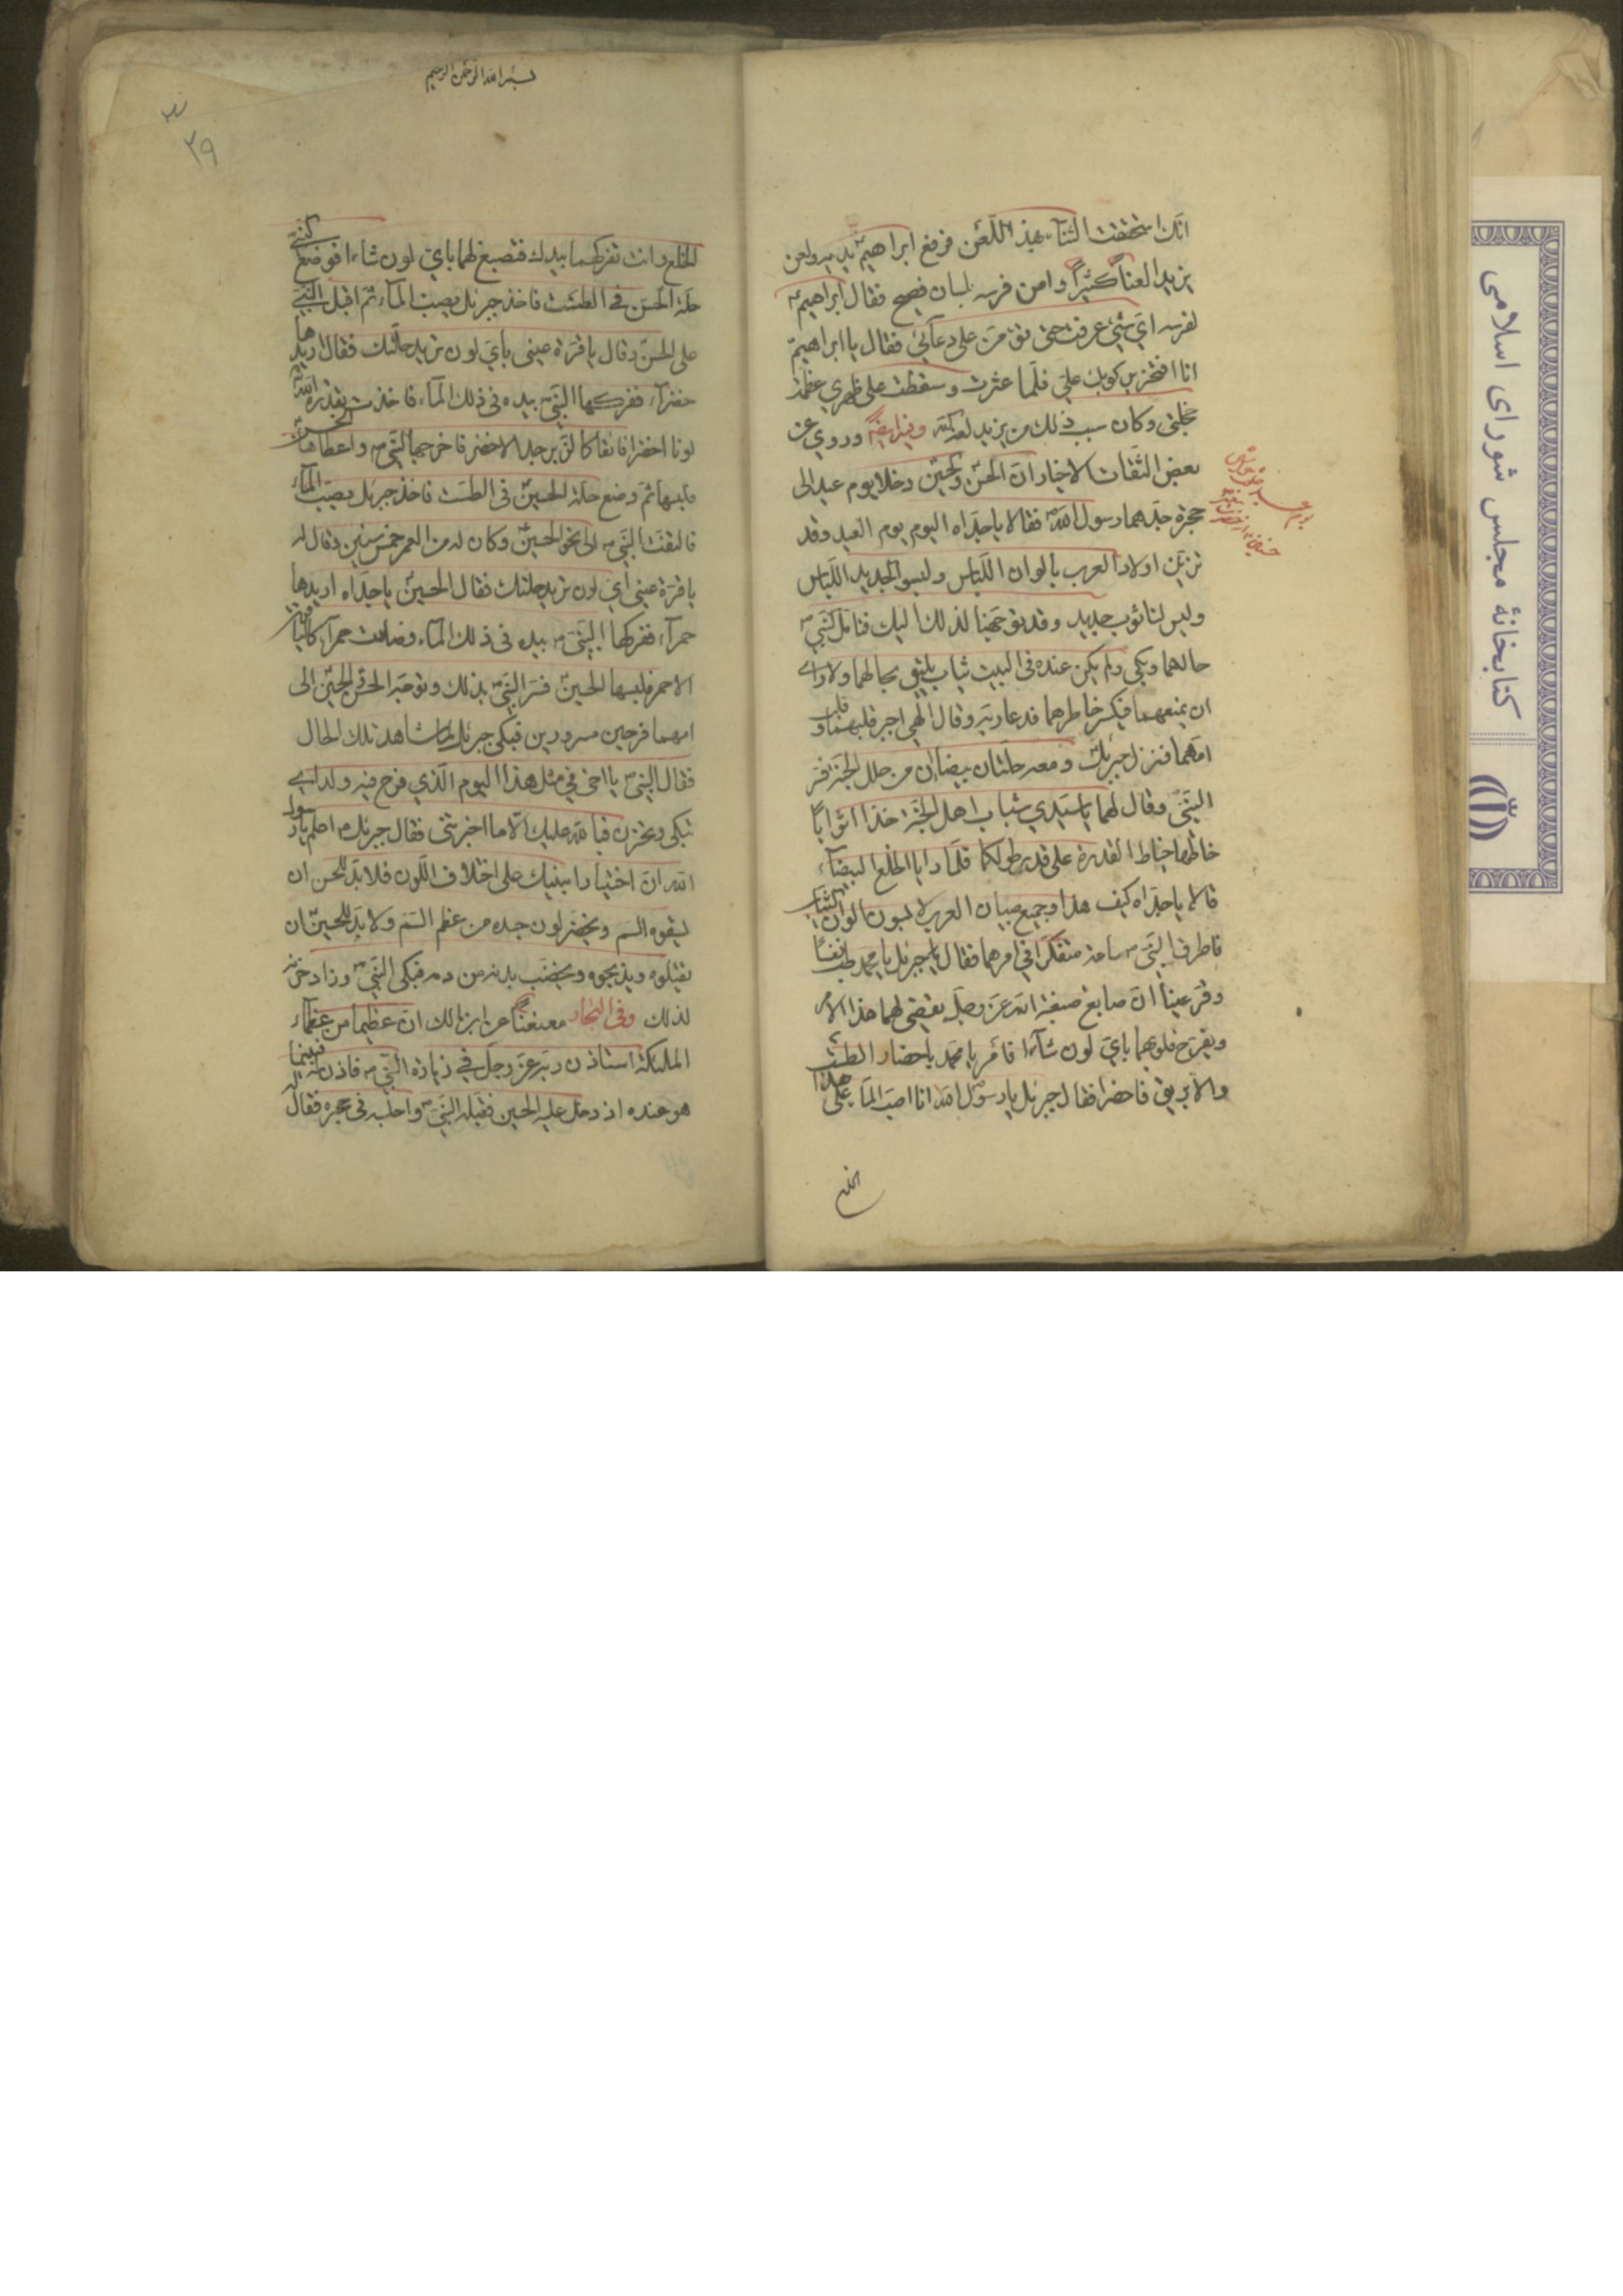 انك استحققت الثناء بهذا اللعن فرفع ابراهيم يديه ولعن
يزيد لعناً كثيراً وامن فرسه بلسان فصيح فقال ابراهيم ع
لفرسه اي شئ عرفت حتى تؤمن على دعائي فقال يا ابراهيم
انا افتخر بركوبك علي فلما عثرت وسقطت على ظهري عظمت
خجلتي وكان سبب ذلك من يزيد لعنه الله وفيه ايضاً وروي عن
بعض الثقات الاخيار ان الحسن والحسين دخلا يوم عيد الى
حجرة جدهما رسول الله ص فقالا يا جداه اليوم يوم العيد وقد
تزين اولاد العرب بالوان اللباس ولبسوا جديد اللباس
وليس لنا ثوب جديد وقد توجهنا لذلك اليك فتامل النبي ص
حالهما وبكى ولم يكن عنده في البيت ثياب يليق بحالهما ولا راى
ان يمنعهما فيكسر خاطرهما فدعا ربه وقال الهي اجبر قلبهما وقلب
امهما فنزل جبرئيل ومعه حلتان بيضاان من حلل الجنة فسر
النبي وقال لهما يا سيدي شباب اهل الجنة خذا اثواباً
خاطها خياط القدرة على قدر طولكما فلما رايا الخلع البيضاء
قالا يا جداه كيف هذا وجميع صبيان العرب لابسون الوان الثياب
فاطرق النبي ص ساعة متفكراً في امرهما فقال جبرئيل يا محمد طب نفساً
وقر عيناً ان صابغ صبغة الله عز وجل يقضي لهما هذا الامر
ويفرح قلوبهما باي لون شاءا فأمر يا محمد باحضار الطشت
والابريق فاحضرا فقال جبرئيل يا رسول الله انا اصب الماء على هذا
الخلع
بسم الله الرحمن الرحيم
٣٩
الخلع وانت تفركهما بيدك فتصبغ لهما باي لون شاءا فوضع النبي
حلة الحسن في الطشت فاخذ جبرئيل يصب الماء ثم اقبل النبي
على الحسن وقال يا قرة عيني باي لون تريد حلتك فقال اريدها
خضراء ففركها النبي بيده في ذلك الماء فاخذت بقدرة الله
لونا اخضر فائقا كالزبرجد الاخضر فاخرجها النبي ص واعطاها الحسن
فلبسها ثم وضع حلة الحسين في الطست فاخذ جبرئيل يصب الماء
فالتفت النبي ص الى نحو الحسين وكان له من العمر خمس سنين وقال له
يا قرة عيني اي لون تريد حلتك فقال الحسين يا جداه اريدها
حمراء ففركها النبي ص بيده في ذلك الماء فصارت حمراء كالياقوت
الاحمر فلبسها الحسين فسر النبي بذلك وتوجه الحسن والحسين الى
امهما فرحين مسرورين فبكى جبرئيل لما شاهد تلك الحال
فقال النبي يا اخي في مثل هذا اليوم الذي فرح فيه ولداي
تبكي وتحزن فبالله عليك الا ما اخبرتني فقال جبرئيل اعلم يا رسول
الله ان اختيار ابنيك على اختلاف اللون فلا بد للحسن ان
يسقوه السم ويخضر لون جسده من عظم السم ولا بد للحسين ان
يقتلوه ويذبحوه ويخضب بدنه من دمه فبكى النبي ص وزاد حزنه
لذلك وفي البحار معنعناً عن ابن مالك ان عظيما من عظماء
الملئكة استاذن ربه عز وجل في زيارة النبي ص فاذن له فبينما
هو عنده اذ دخل عليه الحسين فقبله النبي ص واجلسه في حجره فقال
كتابخانهٔ مجلس شورای اسلامی